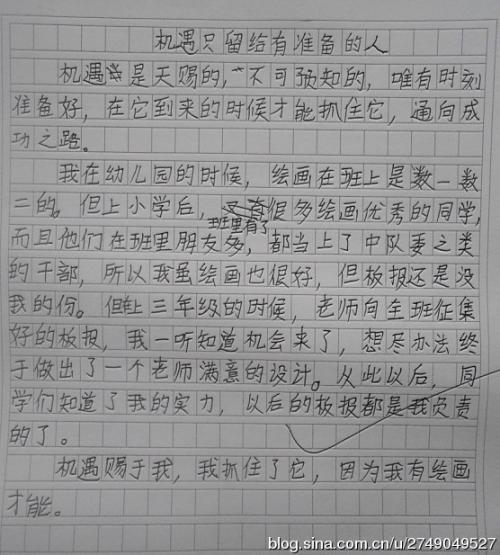 机遇只留给有准备的人
机遇是天赐的,不可预知的,唯有时刻
准备好,在它到来的时候才能抓住它,通向成
功之路。
我在幼儿园的时候,绘画在班上是数一数
二的。但上小学后,班里有了很多绘画优秀的同学,
而且他们在班里朋友多,都当上了中队委之类
的干部,所以我虽绘画也很好,但板报还是没
我的份。但三年级的时候,老师向全班征集
好的板报,我一听知道机会来了,想尽办法终
于做出了一个老师满意的设计。从此以后,同
学们知道了我的实力,以后的板报都是我负责
的了。
机遇赐于我,我抓住了它,因为我有绘画
才能。
blog.sina.com.cn/u/2749049527